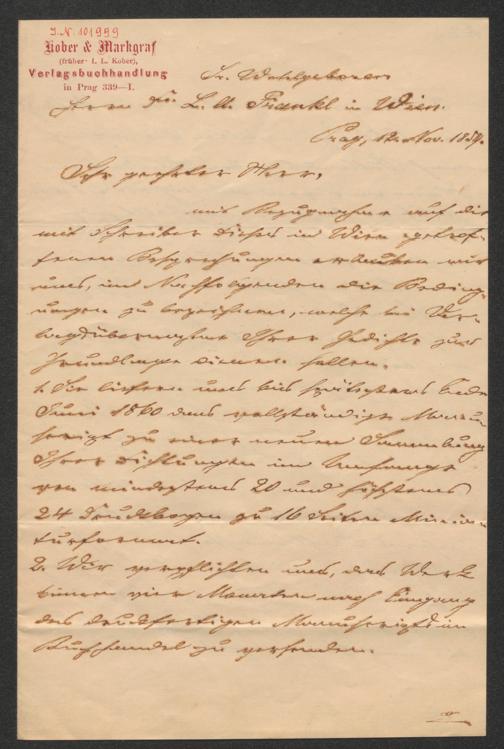 J. N. 101999
Kober & Markgraf
(früher I. L. Kober),
Verlagsbuchhandlung
in Prag 339—I.
Sr. Wohlgeboren
Herrn Dr. L. A. Frankl in Wien.
Prag, 12. Nov. 1859.
Sehr geehrter Herr,
mit Bezugnahme auf die
mit Schreiber Dieses in Wien getrof-
fenen Besprechungen erlauben wir
uns, im Nachfolgenden die Beding-
ungen zu bezeichnen, welche bei Ver-
lagsübernahme Ihrer Gedichte zur
Grundlage dienen sollen.
1. Sie liefern uns bis spätestens Ende
Juni 1860 das vollständige Manu-
script zu einer neuen Sammlung
Ihrer Dichtungen im Umfange
von mindestens 20 und höchstens
24 Druckbogen zu 16 Seiten Minia-
turformat.
2. Wir verpflichten uns, das Werk
binnen vier Monaten nach Eingang
des druckfertigen Manuscripts im
Buchhandel zu versenden.